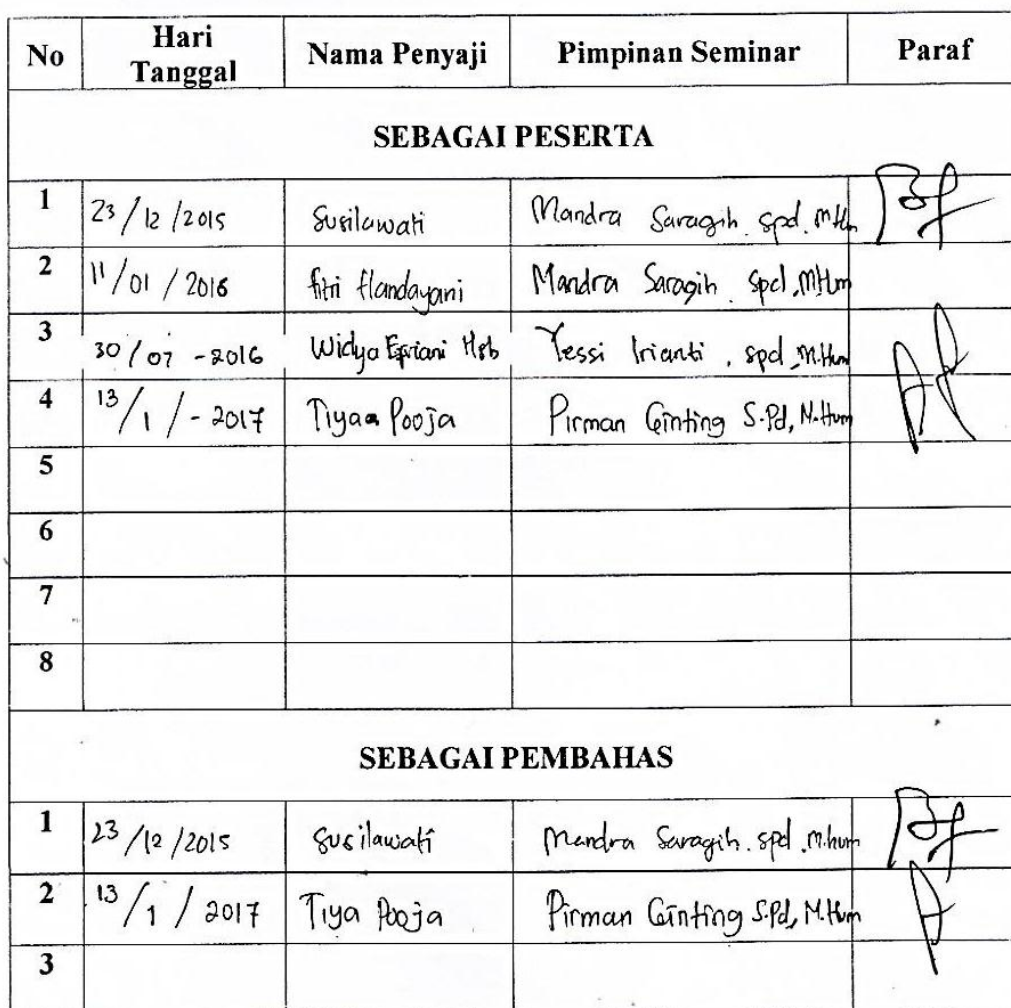 No Hari Tanggal Nama Penyaji Pimpinan Seminar Paraf
SEBAGAI PESERTA
1 23/12/2015 Susilawati Mandra Saragih. spd. M.Hum
2 11/01/2016 fitri Handayani Mandra Saragih. spd, M.Hum
3 30/07-2016 Widya Hsb Yessi Irianti, spd, M.Hum
4 13/1/-2017 Tiyaa Pooja Pirman Ginting S.Pd, M.Hum
5
6
7
8
SEBAGAI PEMBAHAS
1 23/12/2015 Susilawati Mandra Saragih. spd. M.hum
2 13/1/2017 Tiya Pooja Pirman Ginting S.Pd, M.Hum
3